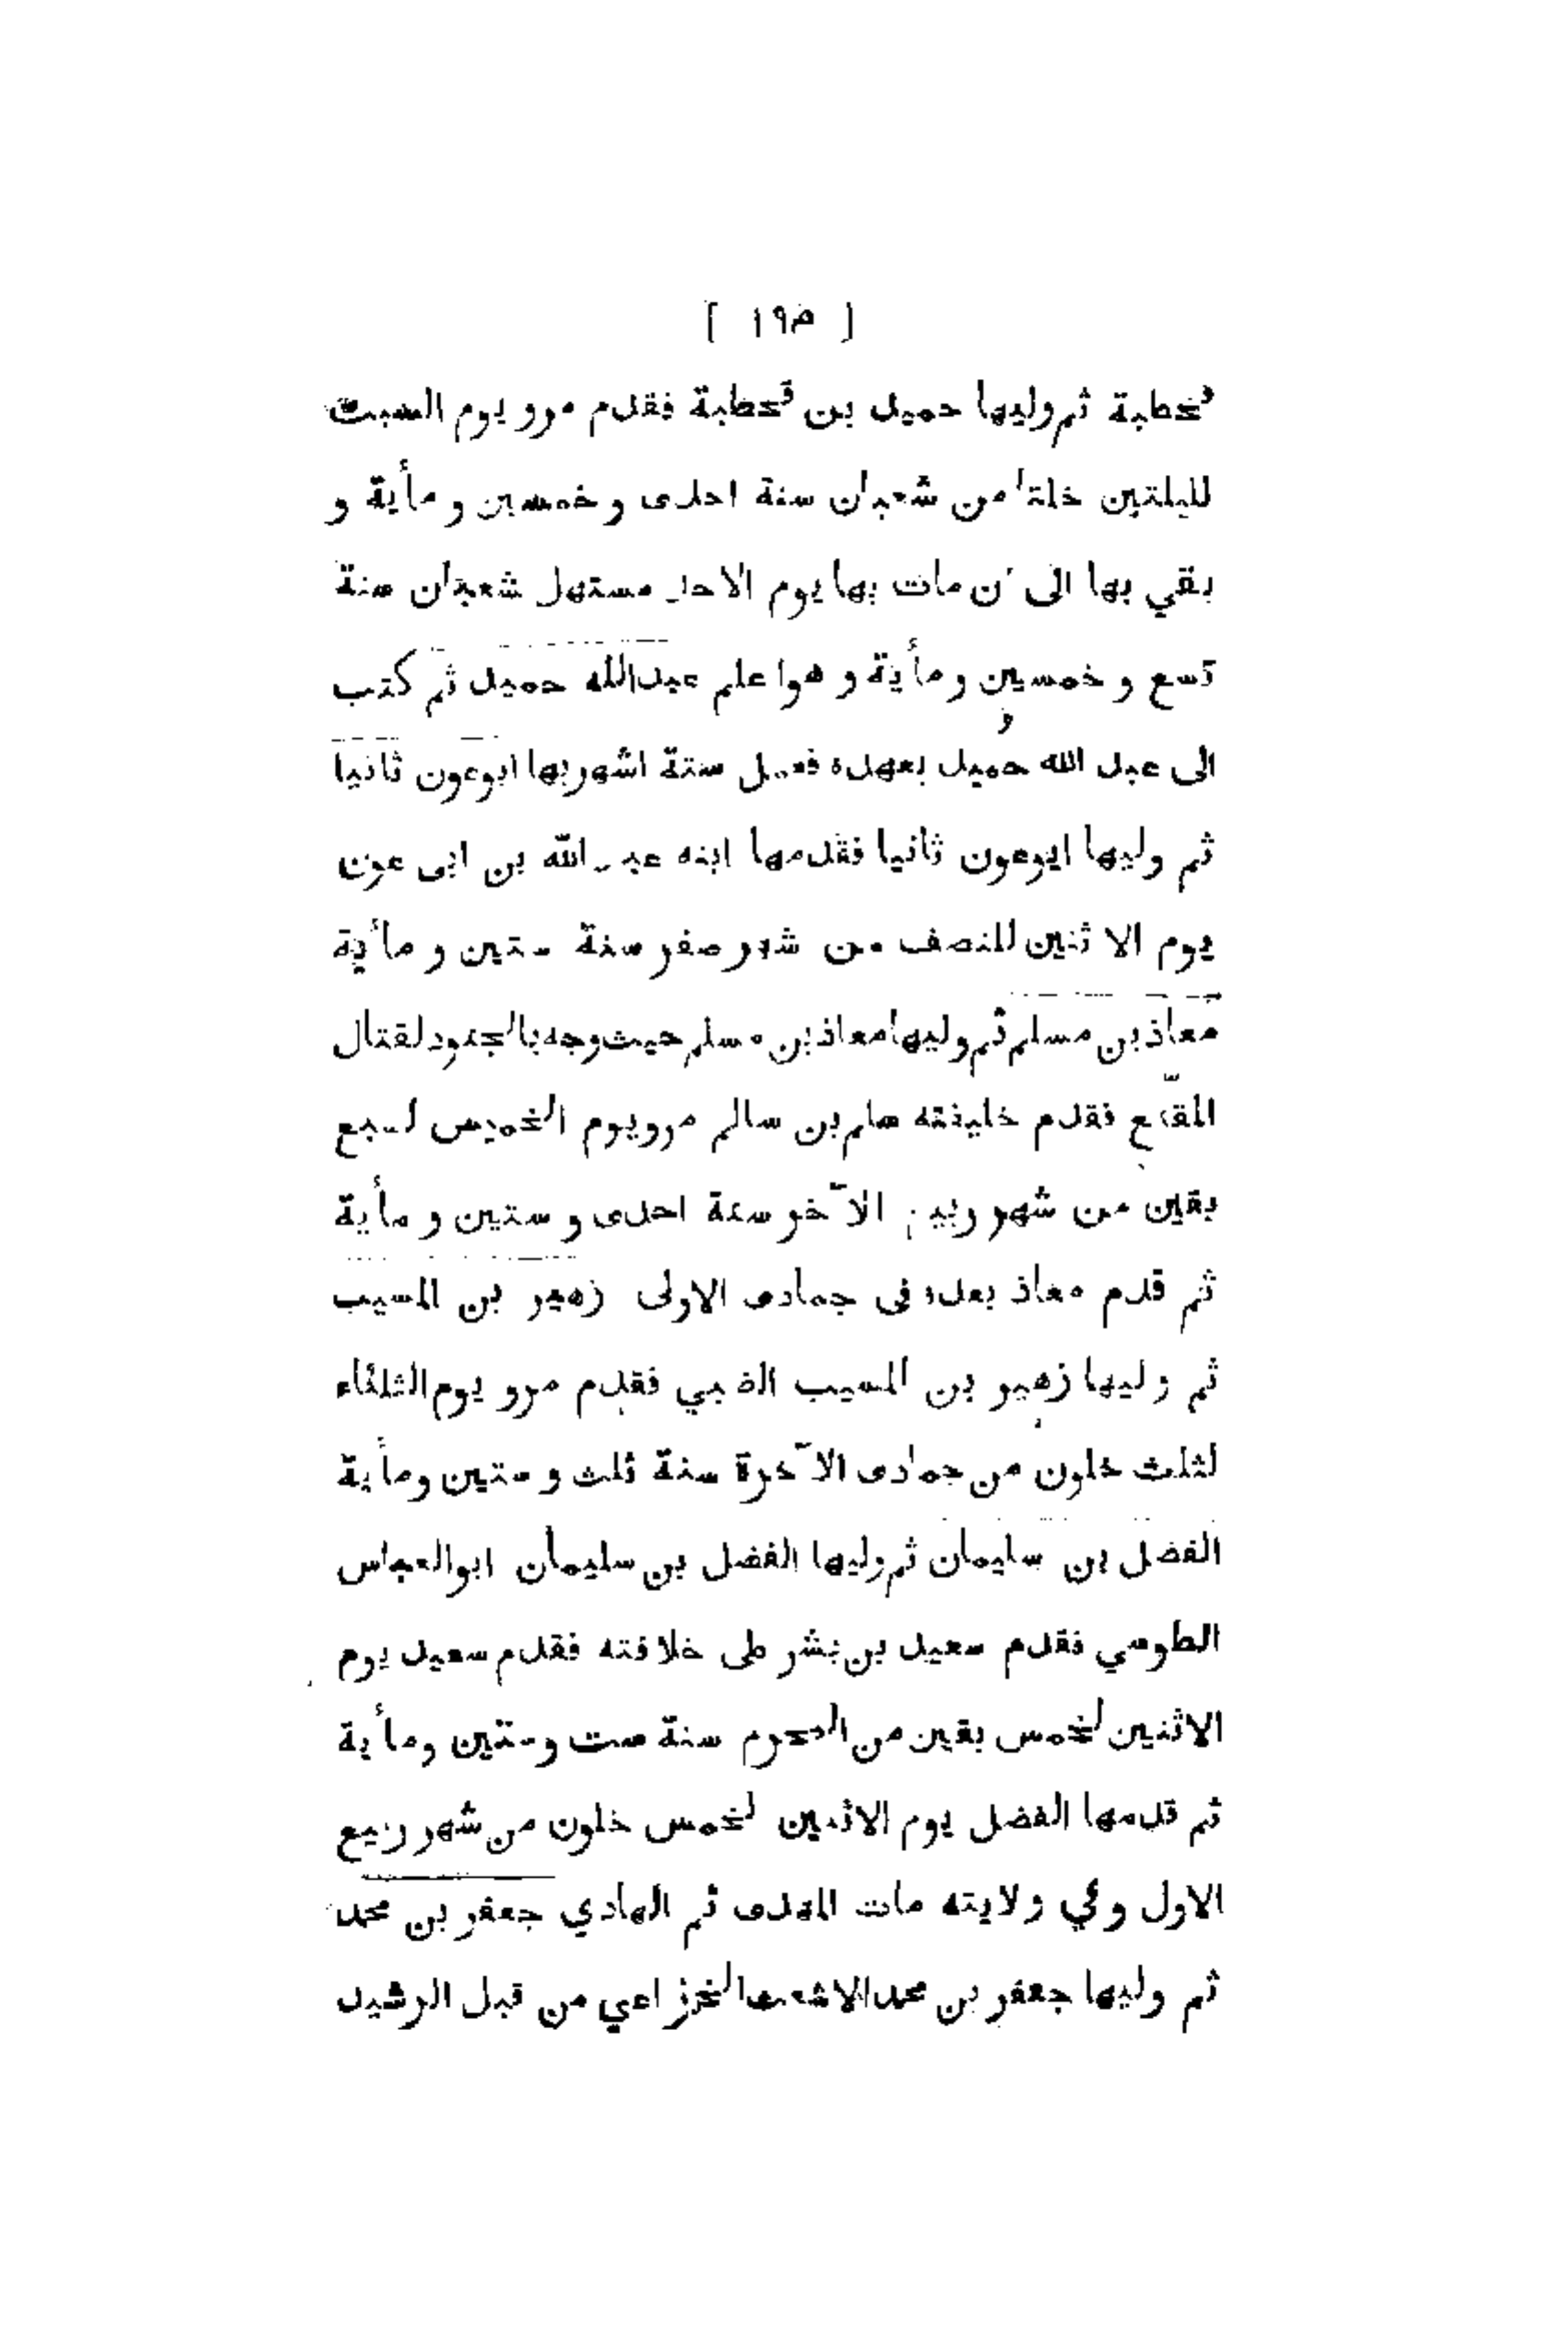 [ ١٩٥ ]
قحطبة ثم وليها حميد بن قحطبة فقدم مرو يوم السبت
لليلتين خلتا من شعبان سنة احدى و خمسين و مأية و
بقي بها الى ان مات بها يوم الاحد مستهل شعبان سنة
تسع و خمسين و مأية و هوا علم عبدالله حميد ثم كتب
الى عبد الله حميد بعهده فعمل ستة اشهر بها ابوعون ثانيا
ثم وليها ابوعون ثانيا فقدمها ابنه عبد الله بن ابى عون
يوم الاثنين للنصف من شهر صفر سنة ستين و مأية
معاذ بن مسلم ثم وليها معاذ بن مسلم حيث وجه بالجنود لقتال
المقنع فقدم خليفته سلم بن سالم مرو يوم الخميس لسبع
بقين من شهر ربيع الآخر سنة احدى و ستين و مأية
ثم قدم معاذ بعده فى جمادى الاولى زهير بن المسيب
ثم وليها زهير بن المسيب الضبي فقدم مرو يوم الثلثاء
لثلث خلون من جمادى الآخرة سنة ثلث و ستين ومأية
الفضل بن سليمان ثم وليها الفضل بن سليمان ابوالعباس
الطوسي فقدم سعيد بن بشر على خلافته فقدم سعيد يوم
الاثنين لخمس بقين من المحرم سنة ست وستين ومأية
ثم قدمها الفضل يوم الاثنين لخمس خلون من شهر ربيع
الاول وفي ولايته مات المهدى ثم الهادي جعفر بن محمد
ثم وليها جعفر بن محمد الاشعث الخزاعي من قبل الرشيد